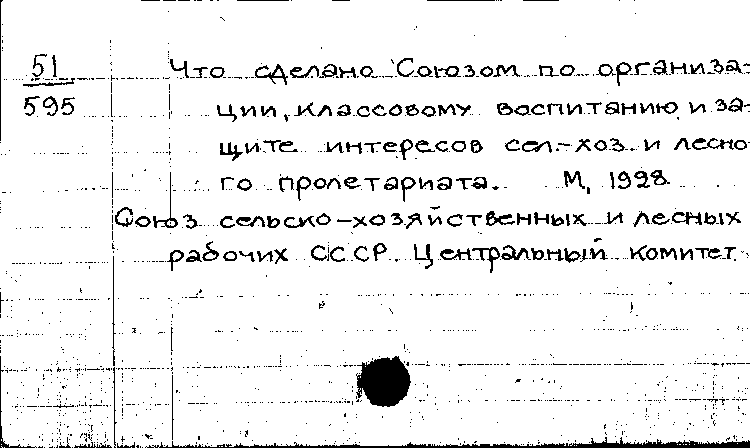 51 Что сделано Союзом по организа-
595 ции, классовому воспитанию и за-
щите интересов сел.-хоз. и лесно
го пролетариата. М, 1928
Союз сельско-хозяйственных и лесных
рабочих СССР. Центральный комитет